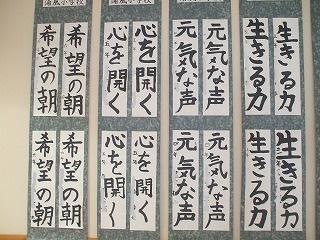 浦風小学校
浦風小学校
希望の朝
希望の朝
心を開く
心を開く
元気な声
元気な声
生きる力
生きる力
希望の朝
希望の朝
心を開く
心を開く
元気な声
元気な声
生きる力
生きる力